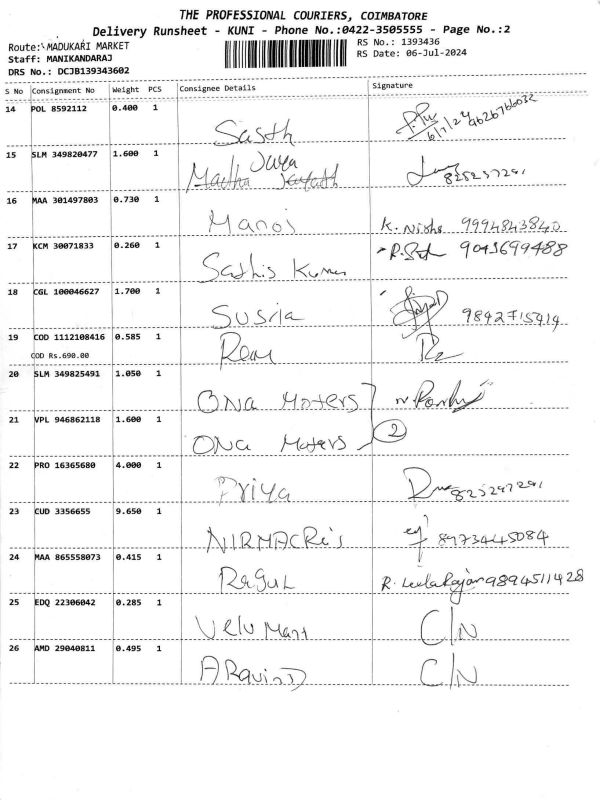 THE PROFESSIONAL COURIERS, COIMBATORE
Delivery Runsheet - KUNI - Phone No.:0422-3505555 - Page No.:2
Route: MADUKARI MARKET
RS No.: 1393436
Staff: MANIKANDARAJ
RS Date: 06-Jul-2024
DRS No.: DCJB139343602
S No Consignment No Weight PCS Consignee Details Signature
14 POL 8592112 0.400 1
Sasth 6/7/24 9626766032
15 SLM 349820477 1.600 1
Jaya
Madha 825297291
16 MAA 301497803 0.730 1
Manoj K. Nisha 9994843840
17 KCM 30071833 0.260 1
Sathis Kumar 9043699488
18 CGL 100046627 1.700 1
Susila 9842715414
19 COD 1112108416 0.585 1
COD Rs.690.00
Ram
20 SLM 349825491 1.050 1
ONa Moters
21 VPL 946862118 1.600 1
ONa Moters 2
22 PRO 16365680 4.000 1
Priya 825297291
23 CUD 3356655 9.650 1
NIRMACRi's 8973445084
24 MAA 865558073 0.415 1
RaguL R. LeelaRajan 9894511428
25 EDQ 22306042 0.285 1
Velu Mani C/N
26 AMD 29040811 0.495 1
ARavinD C/N